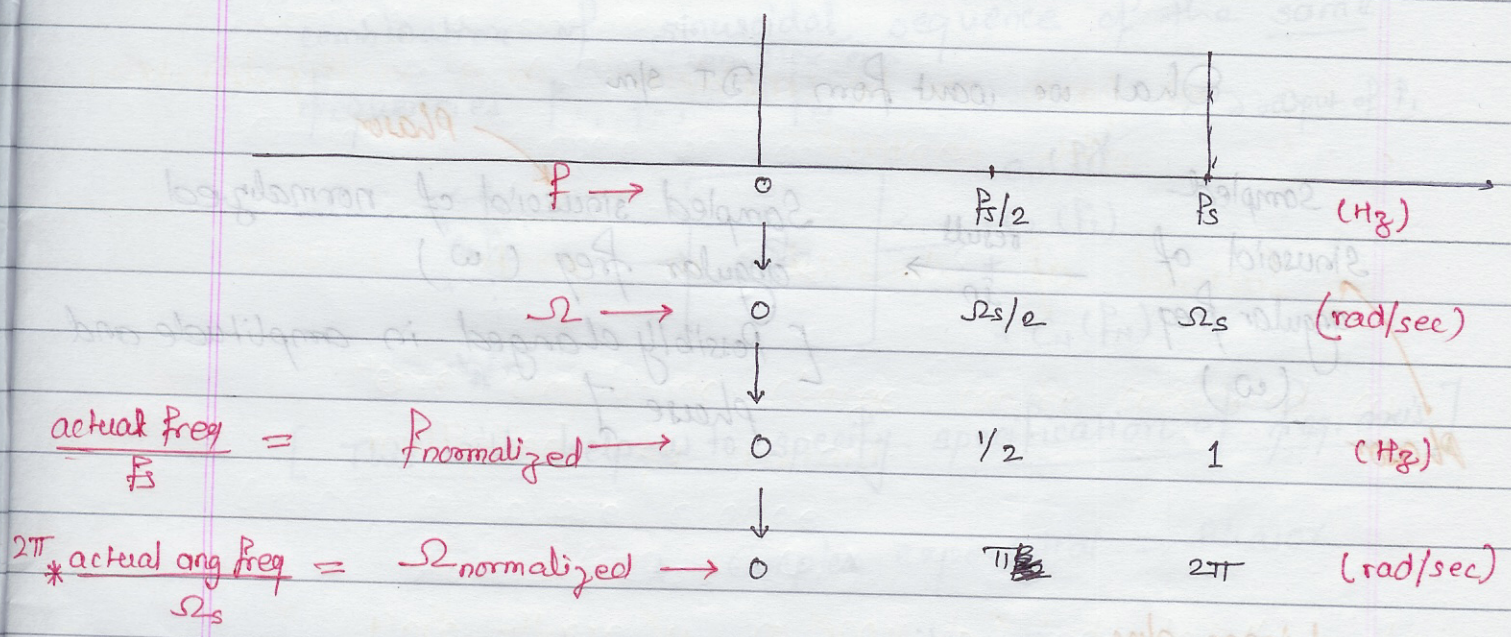 f → 0 fs/2 fs (Hz)
Ω → 0 Ωs/2 Ωs (rad/sec)
actual freq / fs = fnormalized → 0 1/2 1 (Hz)
2π * actual ang freq / Ωs = Ωnormalized → 0 π 2π (rad/sec)